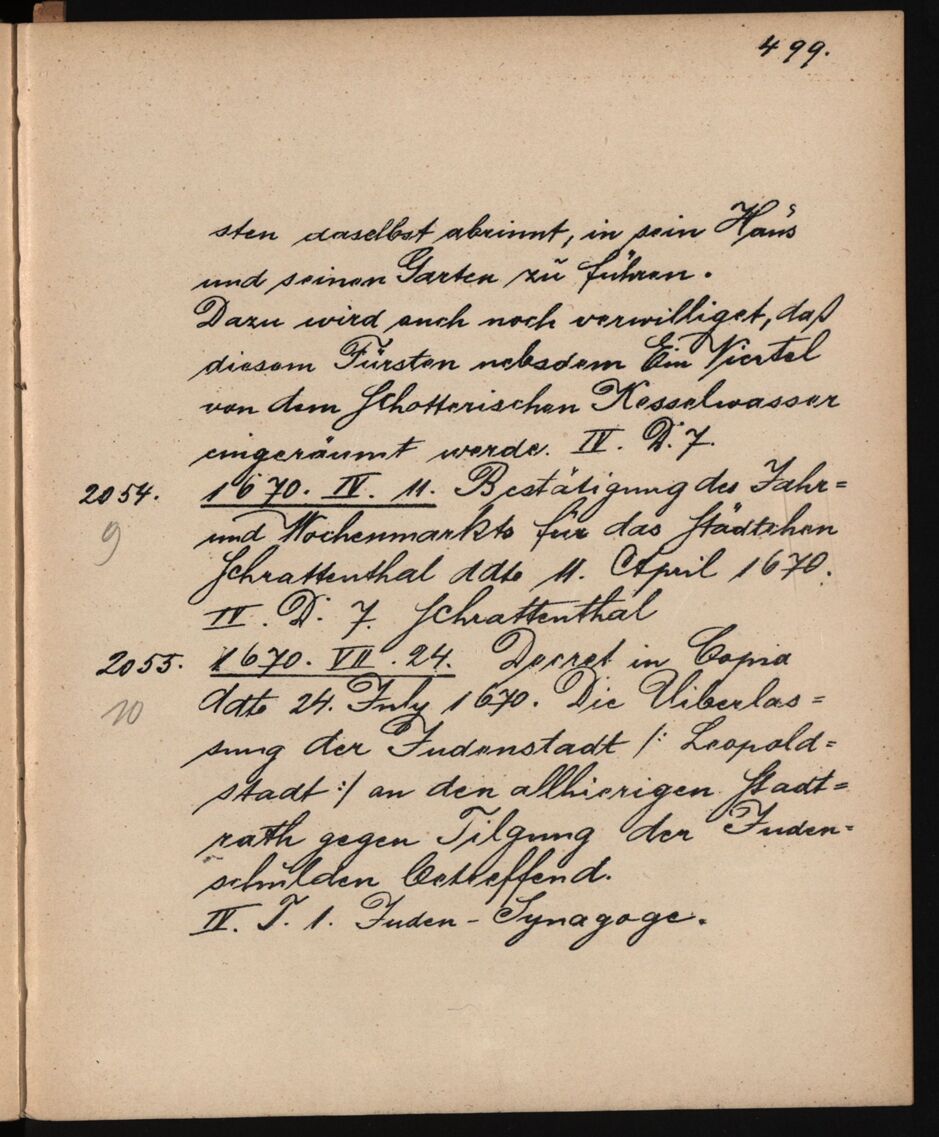 499.
sten daselbst abrinnt, in sein Haus
und seinen Garten zu führen.
Dazu wird auch noch verwilliget, daß
diesem Fürsten nebsdem Ein Viertel
von dem Schotterischen Kesselwasser
eingeräumt werde. IV. D. 7.
2054. 1670. IV. 11. Bestätigung des Jahr=
9 und Wochenmarkts für das Städtchen
Schrattenthal ddto 11. April 1670.
IV. D. 7. Schrattenthal
2055. 1670. VII. 24. Decret in Copia
10 ddto 24. July 1670. Die Uiberlas=
sung der Judenstadt /: Leopold=
stadt :/ an den allhierigen Stadt=
rath gegen Tilgung der Juden=
schulden betreffend.
IV. T. 1. Juden-Synagoge.